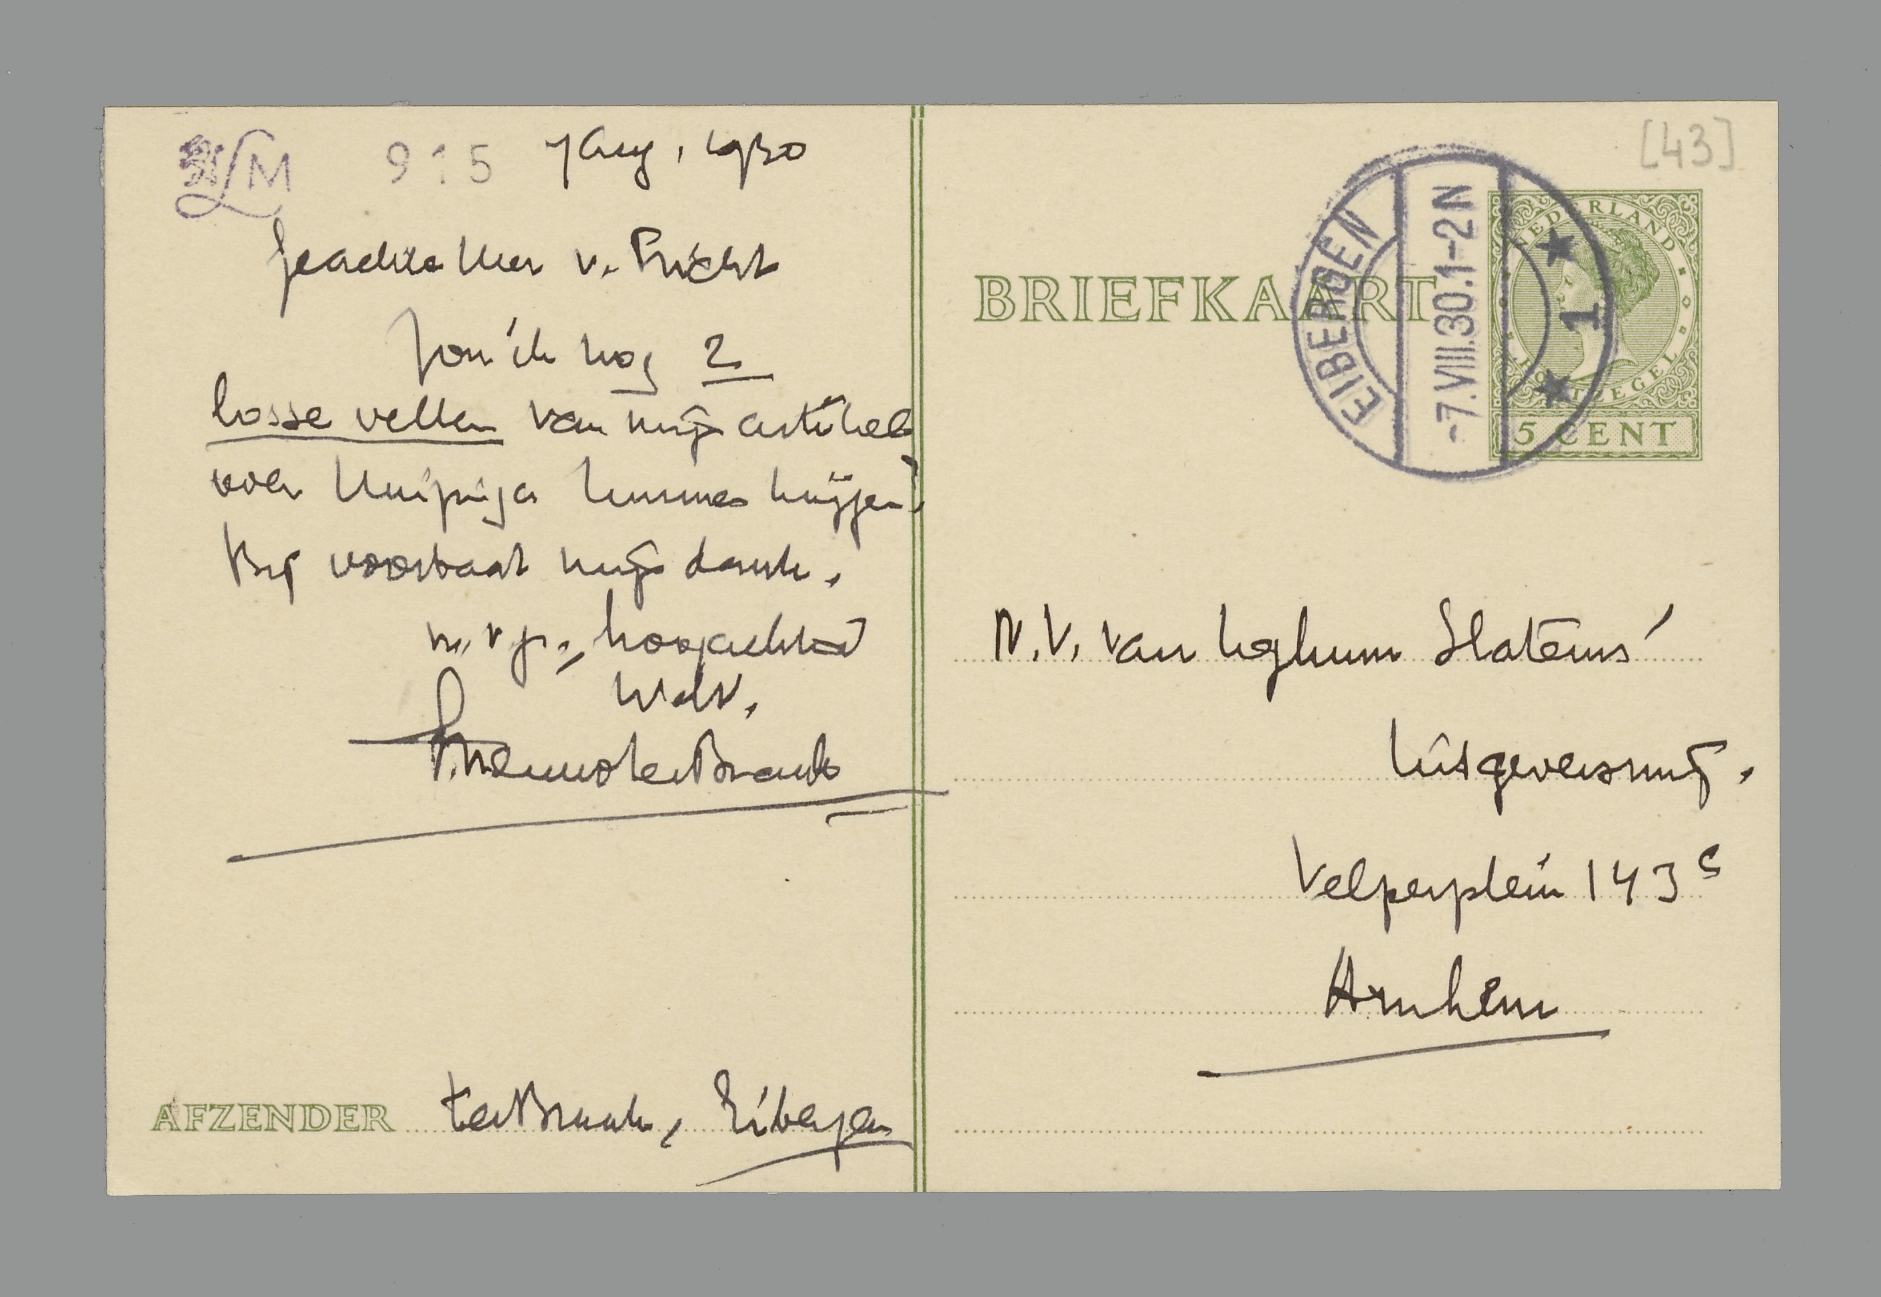 LM 915 7 Aug, 1930
Geachte Heer v. Pricht
Zou ik nog 2
losse vellen van mijn artikel
over Huizinga kunnen krijgen?
Bij voorbaat mijn dank.
m. v. gr., hoogachtend
Uw dw.
Menno ter Braak
AFZENDER ter Braak, Eibergen
[43]
BRIEFKAART
EIBERGEN
-7.VIII.30.1-2N
1
NEDERLAND
POSTZEGEL
5 CENT
N.V. van Loghum Slaterus'
Uitgeversmij.
Velperplein 143 c
Arnhem